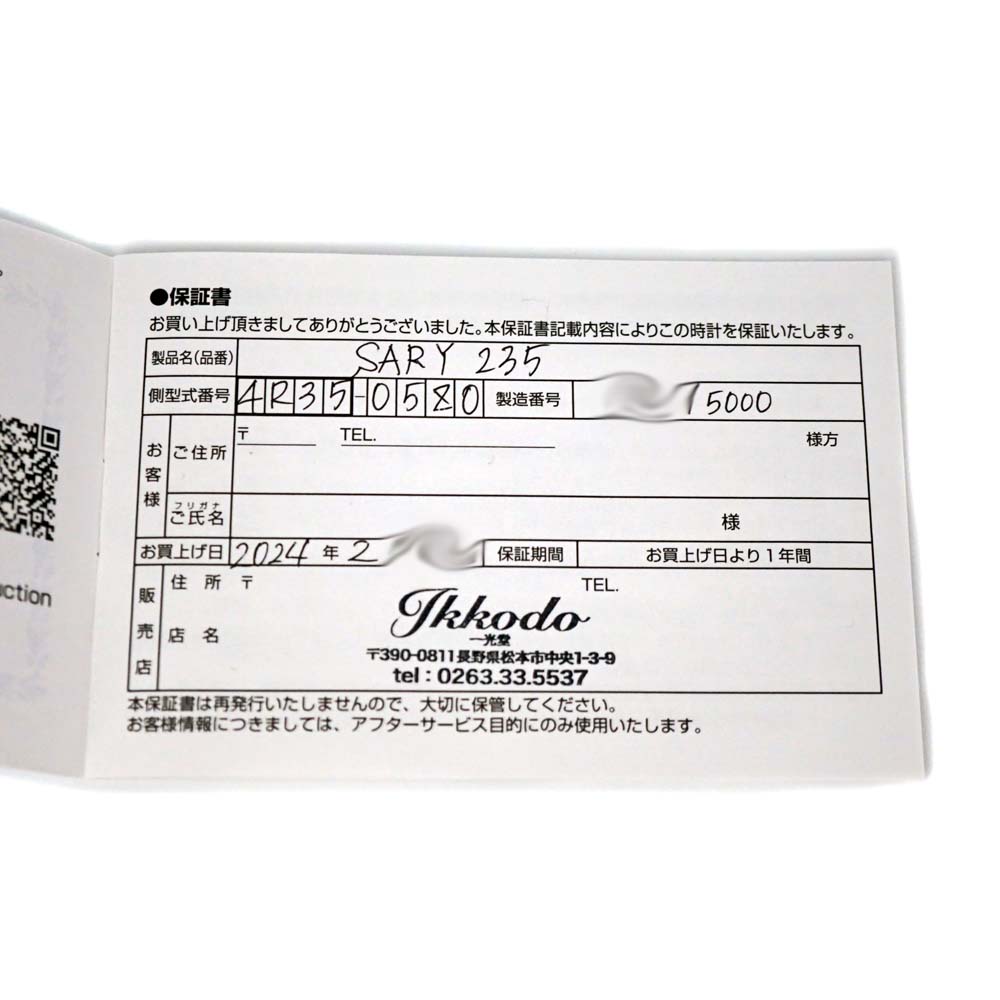 ●保証書
お買い上げ頂きましてありがとうございました。本保証書記載内容によりこの時計を保証いたします。
製品名(品番) SARY 235
側型式番号 4R35-0580 製造番号 5000
お客様 ご住所 〒 TEL. 様方
フリガナ
ご氏名 様
お買上げ日 2024年2 保証期間 お買上げ日より1年間
販売店 住所 〒 TEL.
店名 Ikkodo
一光堂
〒390-0811長野県松本市中央1-3-9
tel:0263.33.5537
本保証書は再発行いたしませんので、大切に保管してください。
お客様情報につきましては、アフターサービス目的にのみ使用いたします。
uction